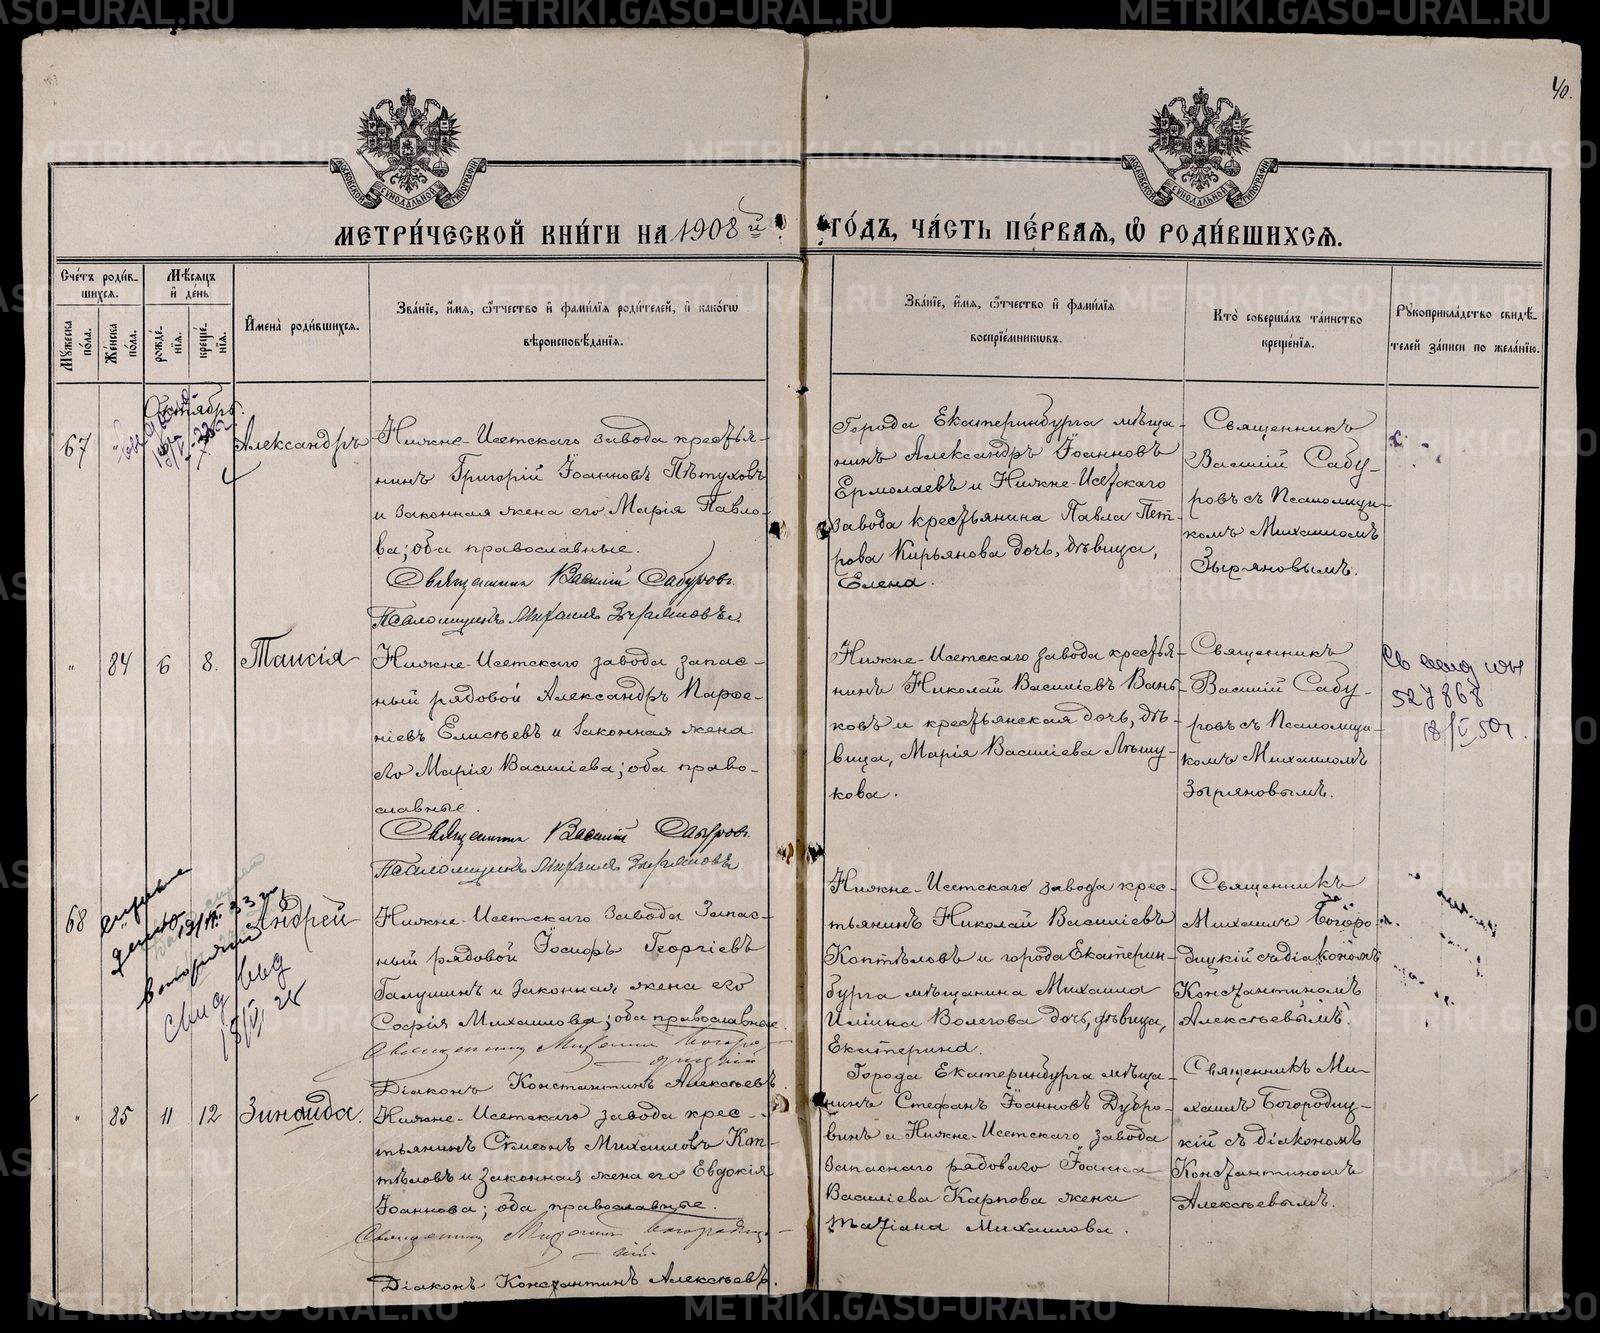 40.
МОСКОВСКОЙ СѴНОДАЛЬНОЙ ТИПОГРАФІИ
МОСКОВСКОЙ СѴНОДАЛЬНОЙ ТИПОГРАФІИ
МЕТРИ́ЧЕСКОЙ КНИ́ГИ НА 1908й ГО́ДЪ, ЧА́СТЬ ПЕ́РВАЯ, Ѡ҆ РОДИ́ВШИХСЯ.
Сче́тъ роди́в-
шихся.
Мꙋ́жеска по́ла.
Же́нска по́ла.
Мѣ́сяцъ
и҆ де́нь
рожде́-
нія.
креще́-
нія.
И҆мена̀ роди́вшихся.
Зва́ніе, и҆́мя, ѻ҆́тчество и҆ фами́лія роди́телей, и҆ како́гѡ
вѣроисповѣ́данія.
Зва́ніе, и҆́мя, ѻ҆́тчество и҆ фами́лія
воспріе́мниковъ.
Кто̀ соверша́лъ та́инство
креще́нія.
Рꙋкоприкла́дство свидѣ́-
телей за́писи по жела́нію.
Октябрь.
67
7.
Александръ
Нижне-Исетскаго завода крестья-
нинъ Григорій Іоанновъ Пѣтуховъ
и законная жена его Марія Павло-
ва; оба православные.
Священникъ Василій Сабуровъ.
Псаломщикъ Михаилъ Зыряновъ.
Города Екатеринбурга мѣща-
нинъ Александръ Іоанновъ
Ермолаевъ и Нижне-Исетскаго
завода крестьянина Павла Пет-
рова Кирьянова дочь, дѣвица,
Елена.
Священникъ
Василій Сабу-
ровъ съ Псаломщи-
комъ Михаиломъ
Зыряновымъ.
" 84 6 8. Таисія
Нижне-Исетскаго завода запас-
ный рядовой Александръ Парѳе-
ніевъ Елисѣевъ и законная жена
его Марія Василіева; оба право-
славные.
Священникъ Василій Сабуровъ.
Псаломщикъ Михаилъ Зыряновъ
Нижне-Исетскаго завода крестья-
нинъ Николай Василіевъ Вань-
ковъ и крестьянская дочь, дѣ-
вица, Марія Василіева Лѣшу-
кова.
Священникъ
Василій Сабу-
ровъ съ Псаломщи-
комъ Михаиломъ
Зыряновымъ.
527868
18/V 50г.
68
Андрей
Нижне-Исетскаго завода запас-
ный рядовой Іосифъ Георгіевъ
Галушинъ и законная жена его
Софія Михаилова; оба православные.
Священникъ Михаилъ Богоро-
дицкій
Діаконъ Константинъ Алексѣевъ.
Нижне-Исетскаго завода крес-
тьянинъ Николай Василіевъ
Коптѣловъ и города Екатерин-
бурга мѣщанина Михаила
Иліина Волегова дочь, дѣвица,
Екатерина.
Священникъ
Михаилъ Богоро-
дицкій съ діакономъ
Константиномъ
Алексѣевымъ.
" 85 11 12 Зинаида.
Нижне-Исетскаго завода крес-
тьянинъ Сѵмеонъ Михаиловъ Коп-
тѣловъ и законная жена его Евдокія
Іоаннова; оба православные.
Священникъ Михаилъ Богородиц-
кій.
Діаконъ Константинъ Алексѣевъ.
Города Екатеринбурга мѣща-
нинъ Стефанъ Іоанновъ Дубро-
винъ и Нижне-Исетскаго завода
запаснаго рядоваго Іоанна
Василіева Карпова жена
Татіана Михаилова.
Священникъ Ми-
хаилъ Богородиц-
кій съ діакономъ
Константиномъ
Алексѣевымъ.
METRIKI.GASO-URAL.RU